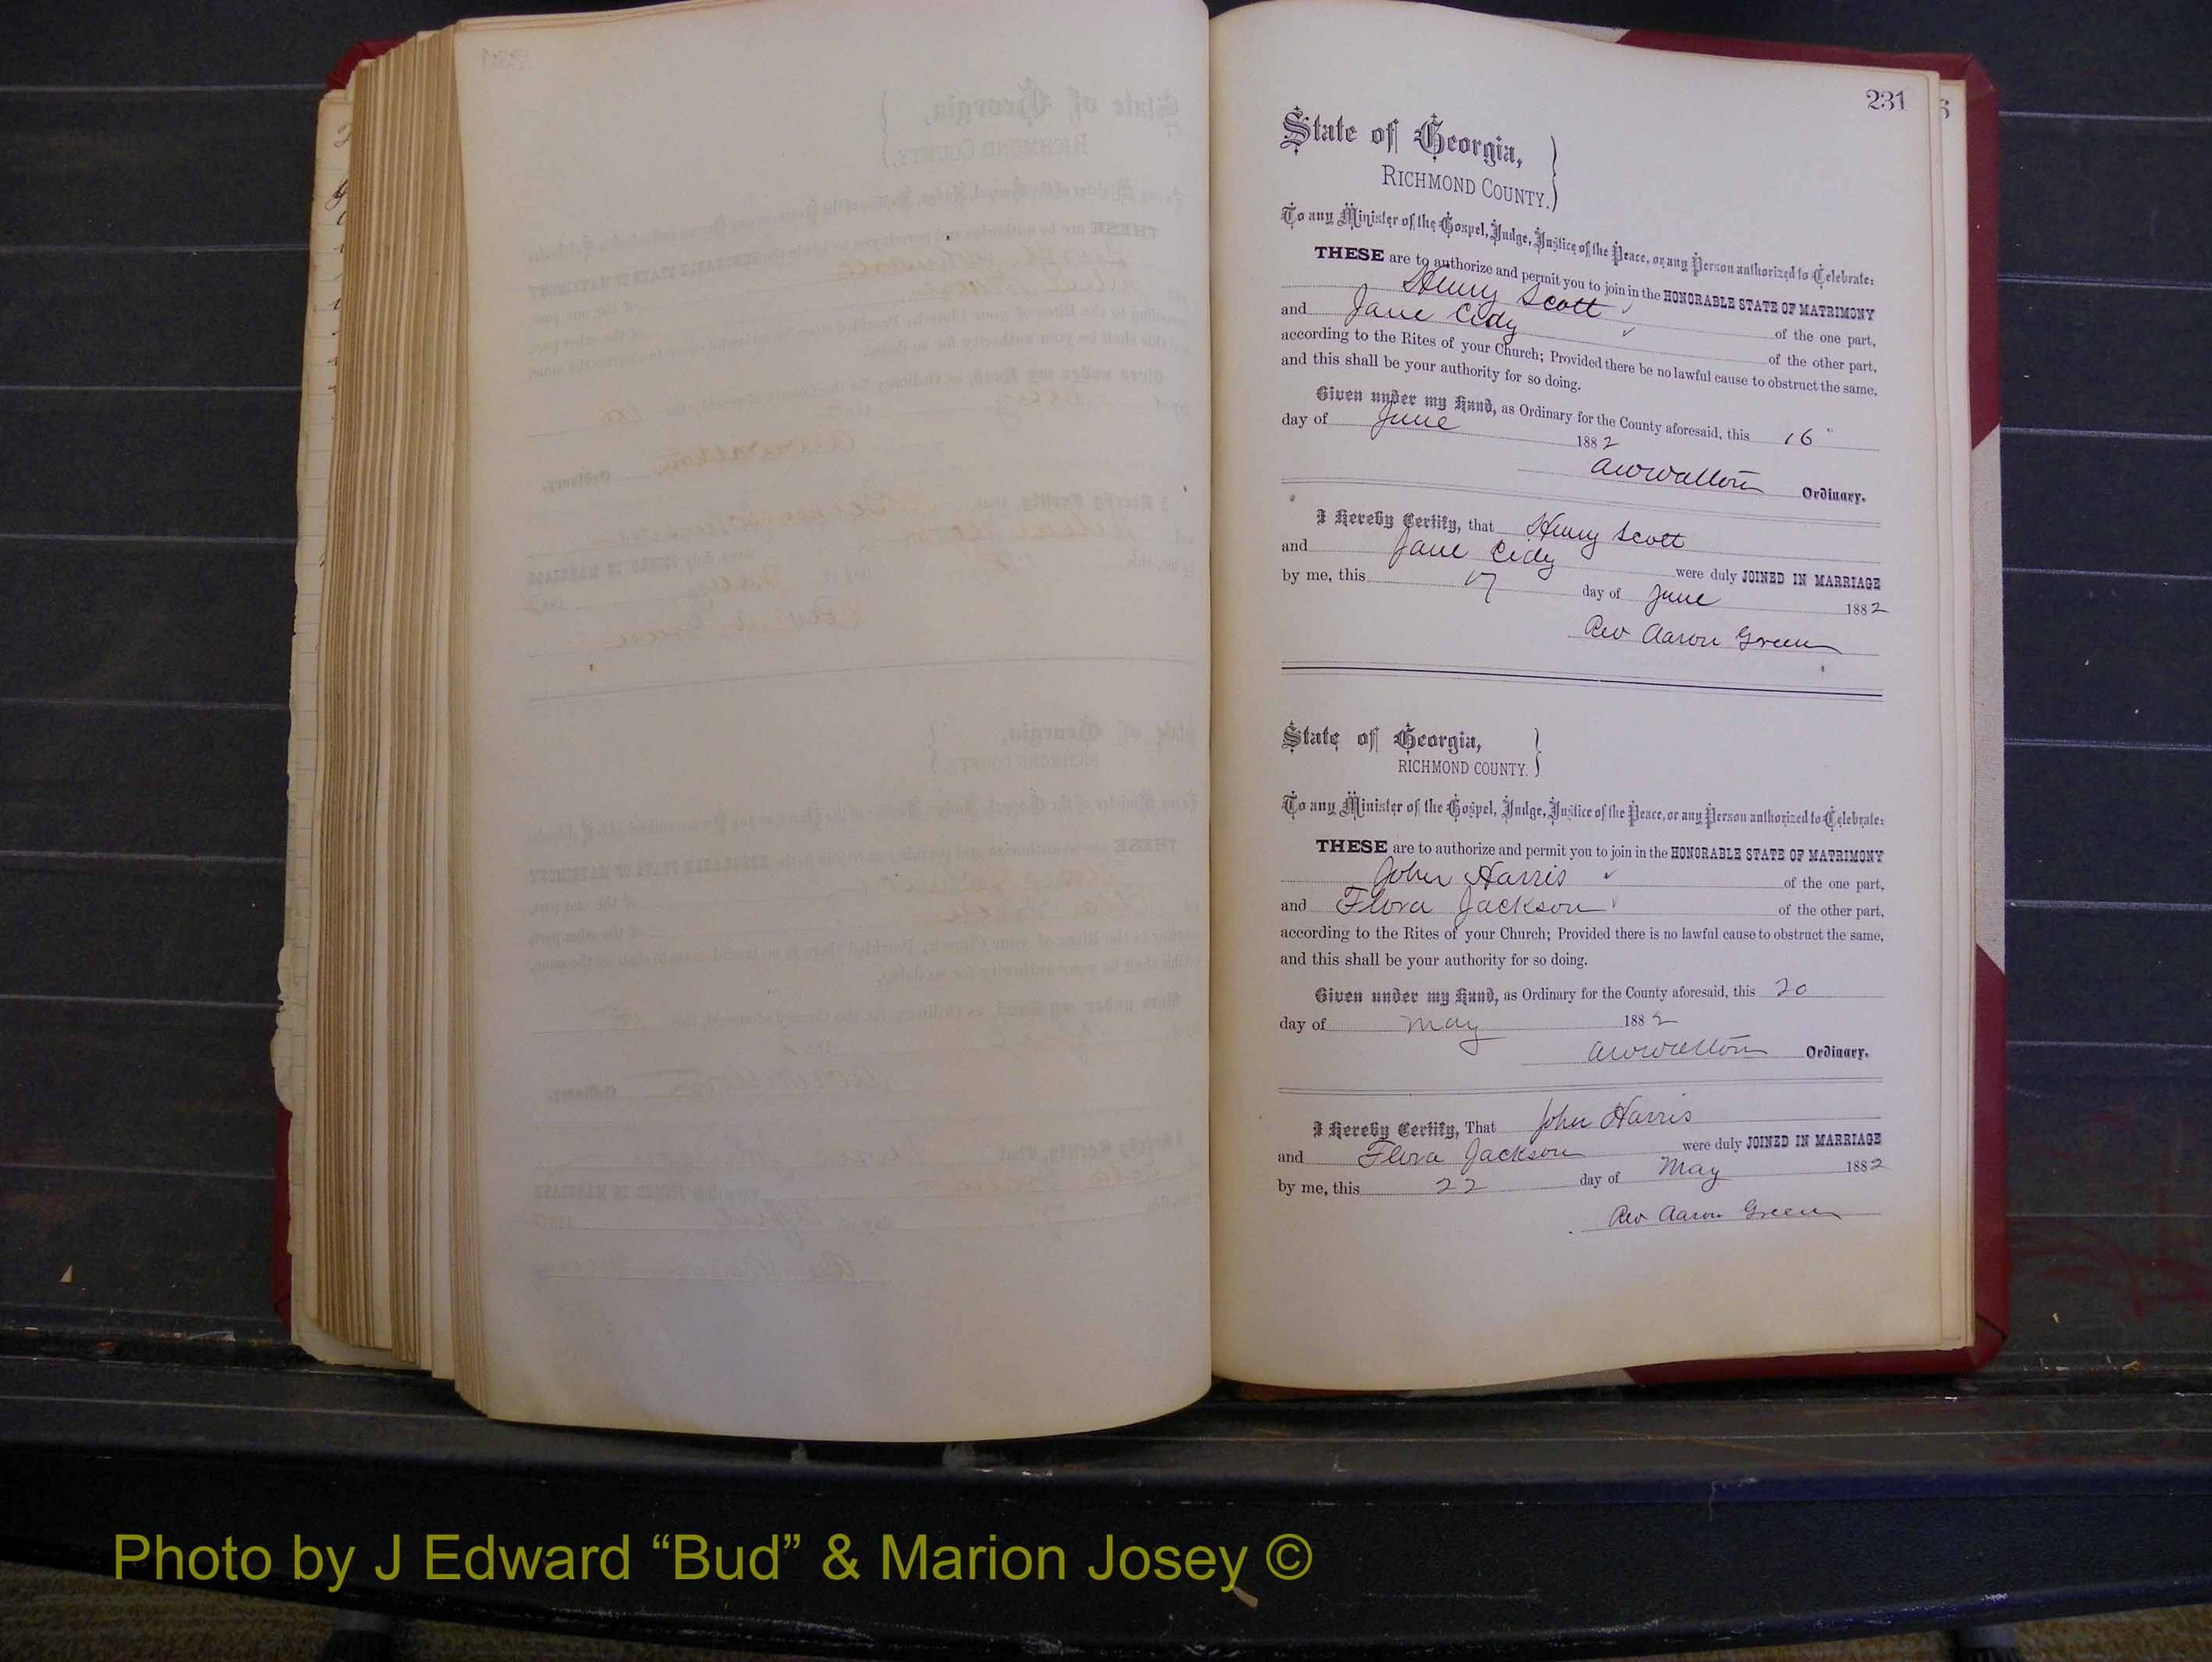 231
State of Georgia,
RICHMOND COUNTY.
To any Minister of the Gospel, Judge, Justice of the Peace, or any Person authorized to Celebrate:
THESE are to authorize and permit you to join in the HONORABLE STATE OF MATRIMONY
Henry Scott of the one part,
and Jane Cidy of the other part,
according to the Rites of your Church; Provided there be no lawful cause to obstruct the same,
and this shall be your authority for so doing.
Given under my Hand, as Ordinary for the County aforesaid, this 16"
day of June 1882
AW Walton Ordinary.
I Hereby Certify, that Henry Scott
and Jane Cidy were duly JOINED IN MARRIAGE
by me, this 17 day of June 1882
Rev Aaron Green
State of Georgia,
RICHMOND COUNTY.
To any Minister of the Gospel, Judge, Justice of the Peace, or any Person authorized to Celebrate:
THESE are to authorize and permit you to join in the HONORABLE STATE OF MATRIMONY
John Harris of the one part,
and Flora Jackson of the other part,
according to the Rites of your Church; Provided there is no lawful cause to obstruct the same,
and this shall be your authority for so doing.
Given under my Hand, as Ordinary for the County aforesaid, this 20
day of May 1882
AW Walton Ordinary.
I Hereby Certify, That John Harris
and Flora Jackson were duly JOINED IN MARRIAGE
by me, this 22 day of May 1882
Rev Aaron Green
Photo by J Edward “Bud” & Marion Josey ©